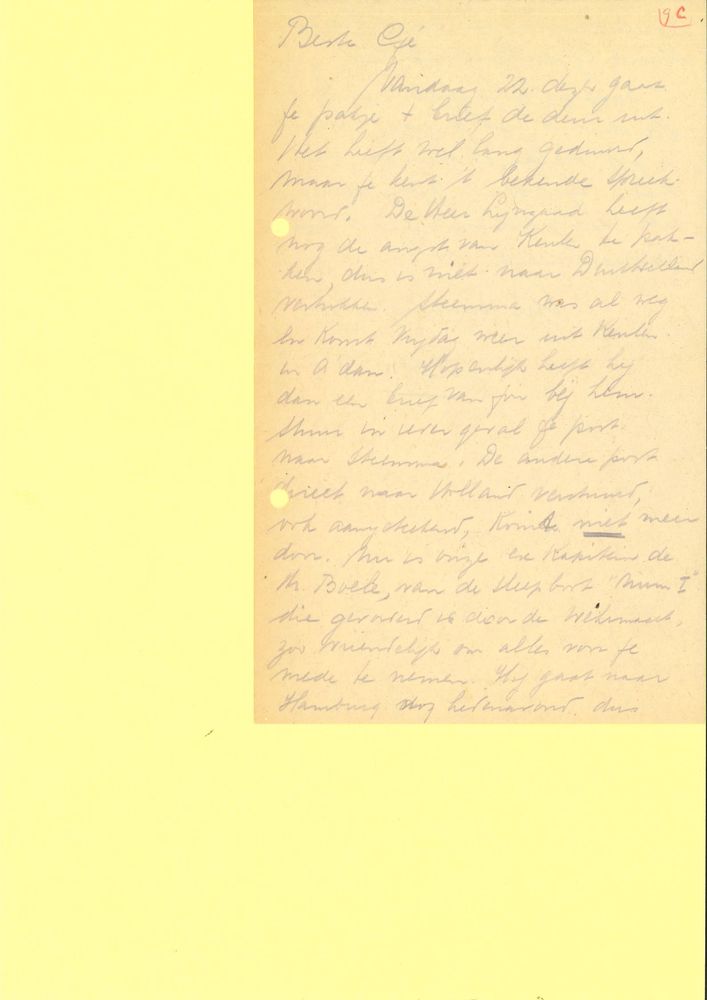 19 C
Beste Cé
Vandaag 22 dezer gaat
je pakje + brief de deur uit.
Het heeft wel lang geduurd,
maar je kent 't bekende spreek-
woord. De Heer heeft
nog de angst van Keulen te pak-
ken, dus is niet naar Duitschland
vertrokken. Steemma was al weg
en komt Vrijdag weer uit Keulen
in A'dam. Hopenlijk heeft hij
dan een brief van jou bij hem.
Stuur in ieder geval je post
naar Steemma. De andere post
direct naar Holland verstuurd,
ook aangeteekend, komt niet meer
door. Nu is onze ex Kapitein de
Hr. Boele, van de sleepboot "Mum I"
die gevorderd is door de Wehrmacht,
zoo vriendelijk om alles voor je
mede te nemen. Hij gaat naar
Hamburg nog hedenavond dus